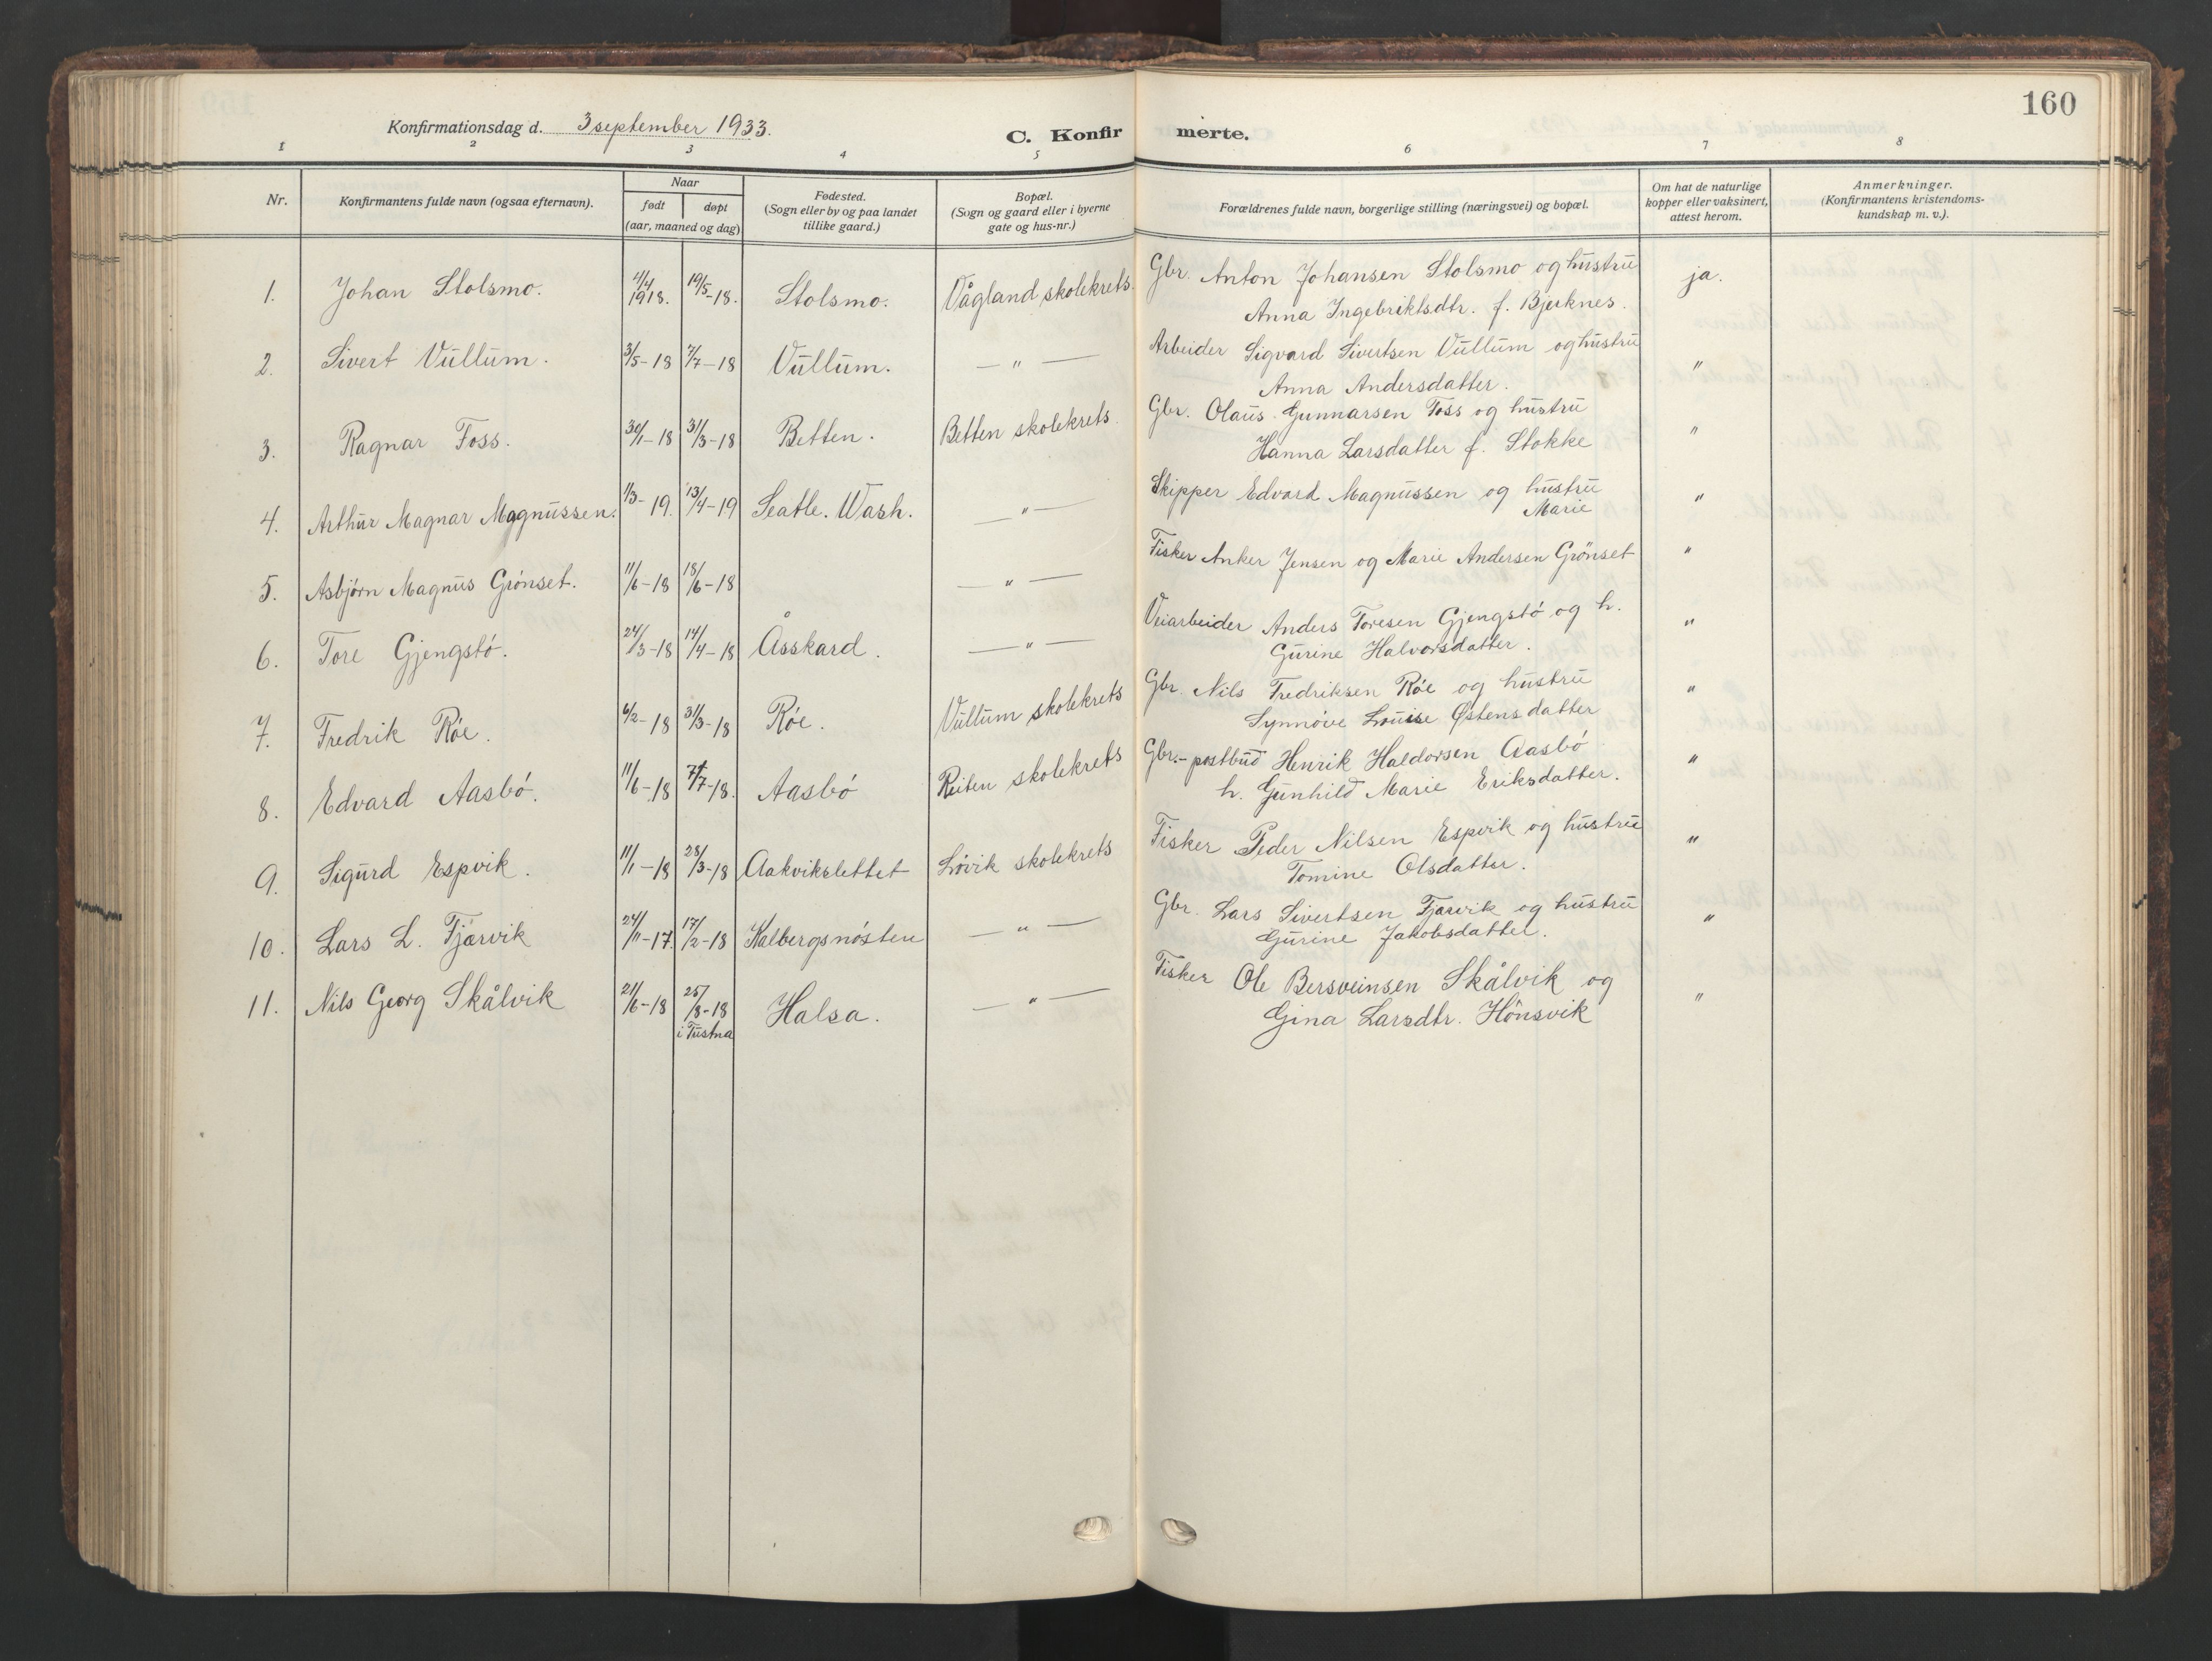 160
Konfirmationsdag d. 3 september 1933.
C. Konfirmerte.
1 2 3 4 5 6 7 8
Nr.
Konfirmantens fulde navn (ogsaa efternavn).
Naar
født døpt
(aar, maaned og dag)
Fødested.
(Sogn eller by og paa landet
tillike gaard.)
Bopæl.
(Sogn og gaard eller i byerne
gate og hus-nr.)
Forældrenes fulde navn, borgerlige stilling (næringsvei) og bopæl.
Om hat de naturlige
kopper eller vaksinert,
attest herom.
Anmerkninger.
(Konfirmantens kristendoms-
kundskap m. v.).
1. Johan Stolsmo. 4/4 1918. 19/5-18. Stolsmo. Vågland skolekrets. Gbr. Anton Johansen Stolsmo og hustru ja.
Anna Ingebriktsdtr. f. Bjerknes.
2. Sivert Vullum. 3/5-18 7/7-18 Vullum. — " — Arbeider Sigvard Sivertsen Vullum og hustru "
Anna Andersdatter.
3. Ragnar Foss. 30/1-18 31/3-18 Betten. Betten skolekrets Gbr. Olaus Gunnarsen Foss og hustru "
Hanna Larsdatter f. Stokke
4. Arthur Magnar Magnussen. 1/3-19. 13/4-19 Seatle. Wash. — " — Skipper Edvard Magnussen og hustru "
Marie
5. Asbjørn Magnus Grönset. 11/6-18 18/6-18 — " — Fisker Anker Jensen og Marie Andersen Grönset "
6. Tore Gjengstö. 24/3-18 14/4-18 Åsskard. — " — Veiarbeider Anders Toresen Gjengstö og h. "
Gurine Halvorsdatter.
7. Fredrik Röe. 6/2-18 31/3-18 Röe. Vullum skolekrets Gbr. Nils Fredriksen Röe og hustru "
Synnöve Louise Østensdatter
8. Edvard Aasbö. 11/6-18 7/7-18. Aasbö Reiten skolekrets Gbr.- postbud Henrik Haldorsen Aasbö "
h. Gunhild Marie Eriksdatter.
9. Sigurd Espvik. 11/1-18 28/3-18 Aakvikslettet Lövik skolekrets Fisker Peder Nilsen Espvik og hustru "
Tomine Olsdatter.
10. Lars L. Fjærvik 24/11-17. 17/2-18 Kalbergsnösten — " — Gbr. Lars Sivertsen Fjærvik og hustru "
Gurine Jakobsdatter.
11. Nils Georg Skålvik 21/6-18 25/8-18 Halsa. — " — Fisker Ole Bersveinsen Skålvik og "
i Tustna Gina Larsdtr. Hönsvik